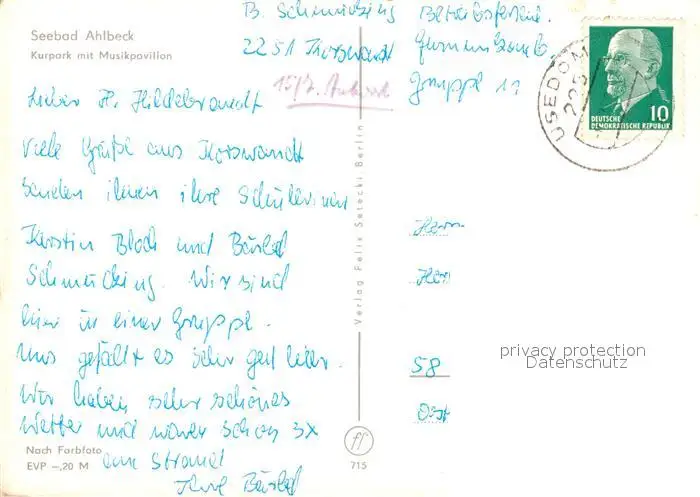 Seebad Ahlbeck
Kurpark mit Musikpavillon
B. Schmucking
2251 Korswandt
Gruppe 11
15/7.
Lieber H. Hildebrandt
Viele Grüße aus Korswandt
senden ihnen ihre Schülerinnen
Kerstin Bloch und Bärbel
Schmucking. Wir sind
hier in einer Gruppe.
Uns gefällt es sehr gut hier.
Wir haben sehr schönes
Wetter und waren schon 3x
am Strand
Ihre Bärbel
Nach Farbfoto
EVP –,20 M
Verlag Felix Setecki Berlin
ff
715
Herrn
58
USEDOM
DEUTSCHE
DEMOKRATISCHE REPUBLIK
10
privacy protection
Datenschutz